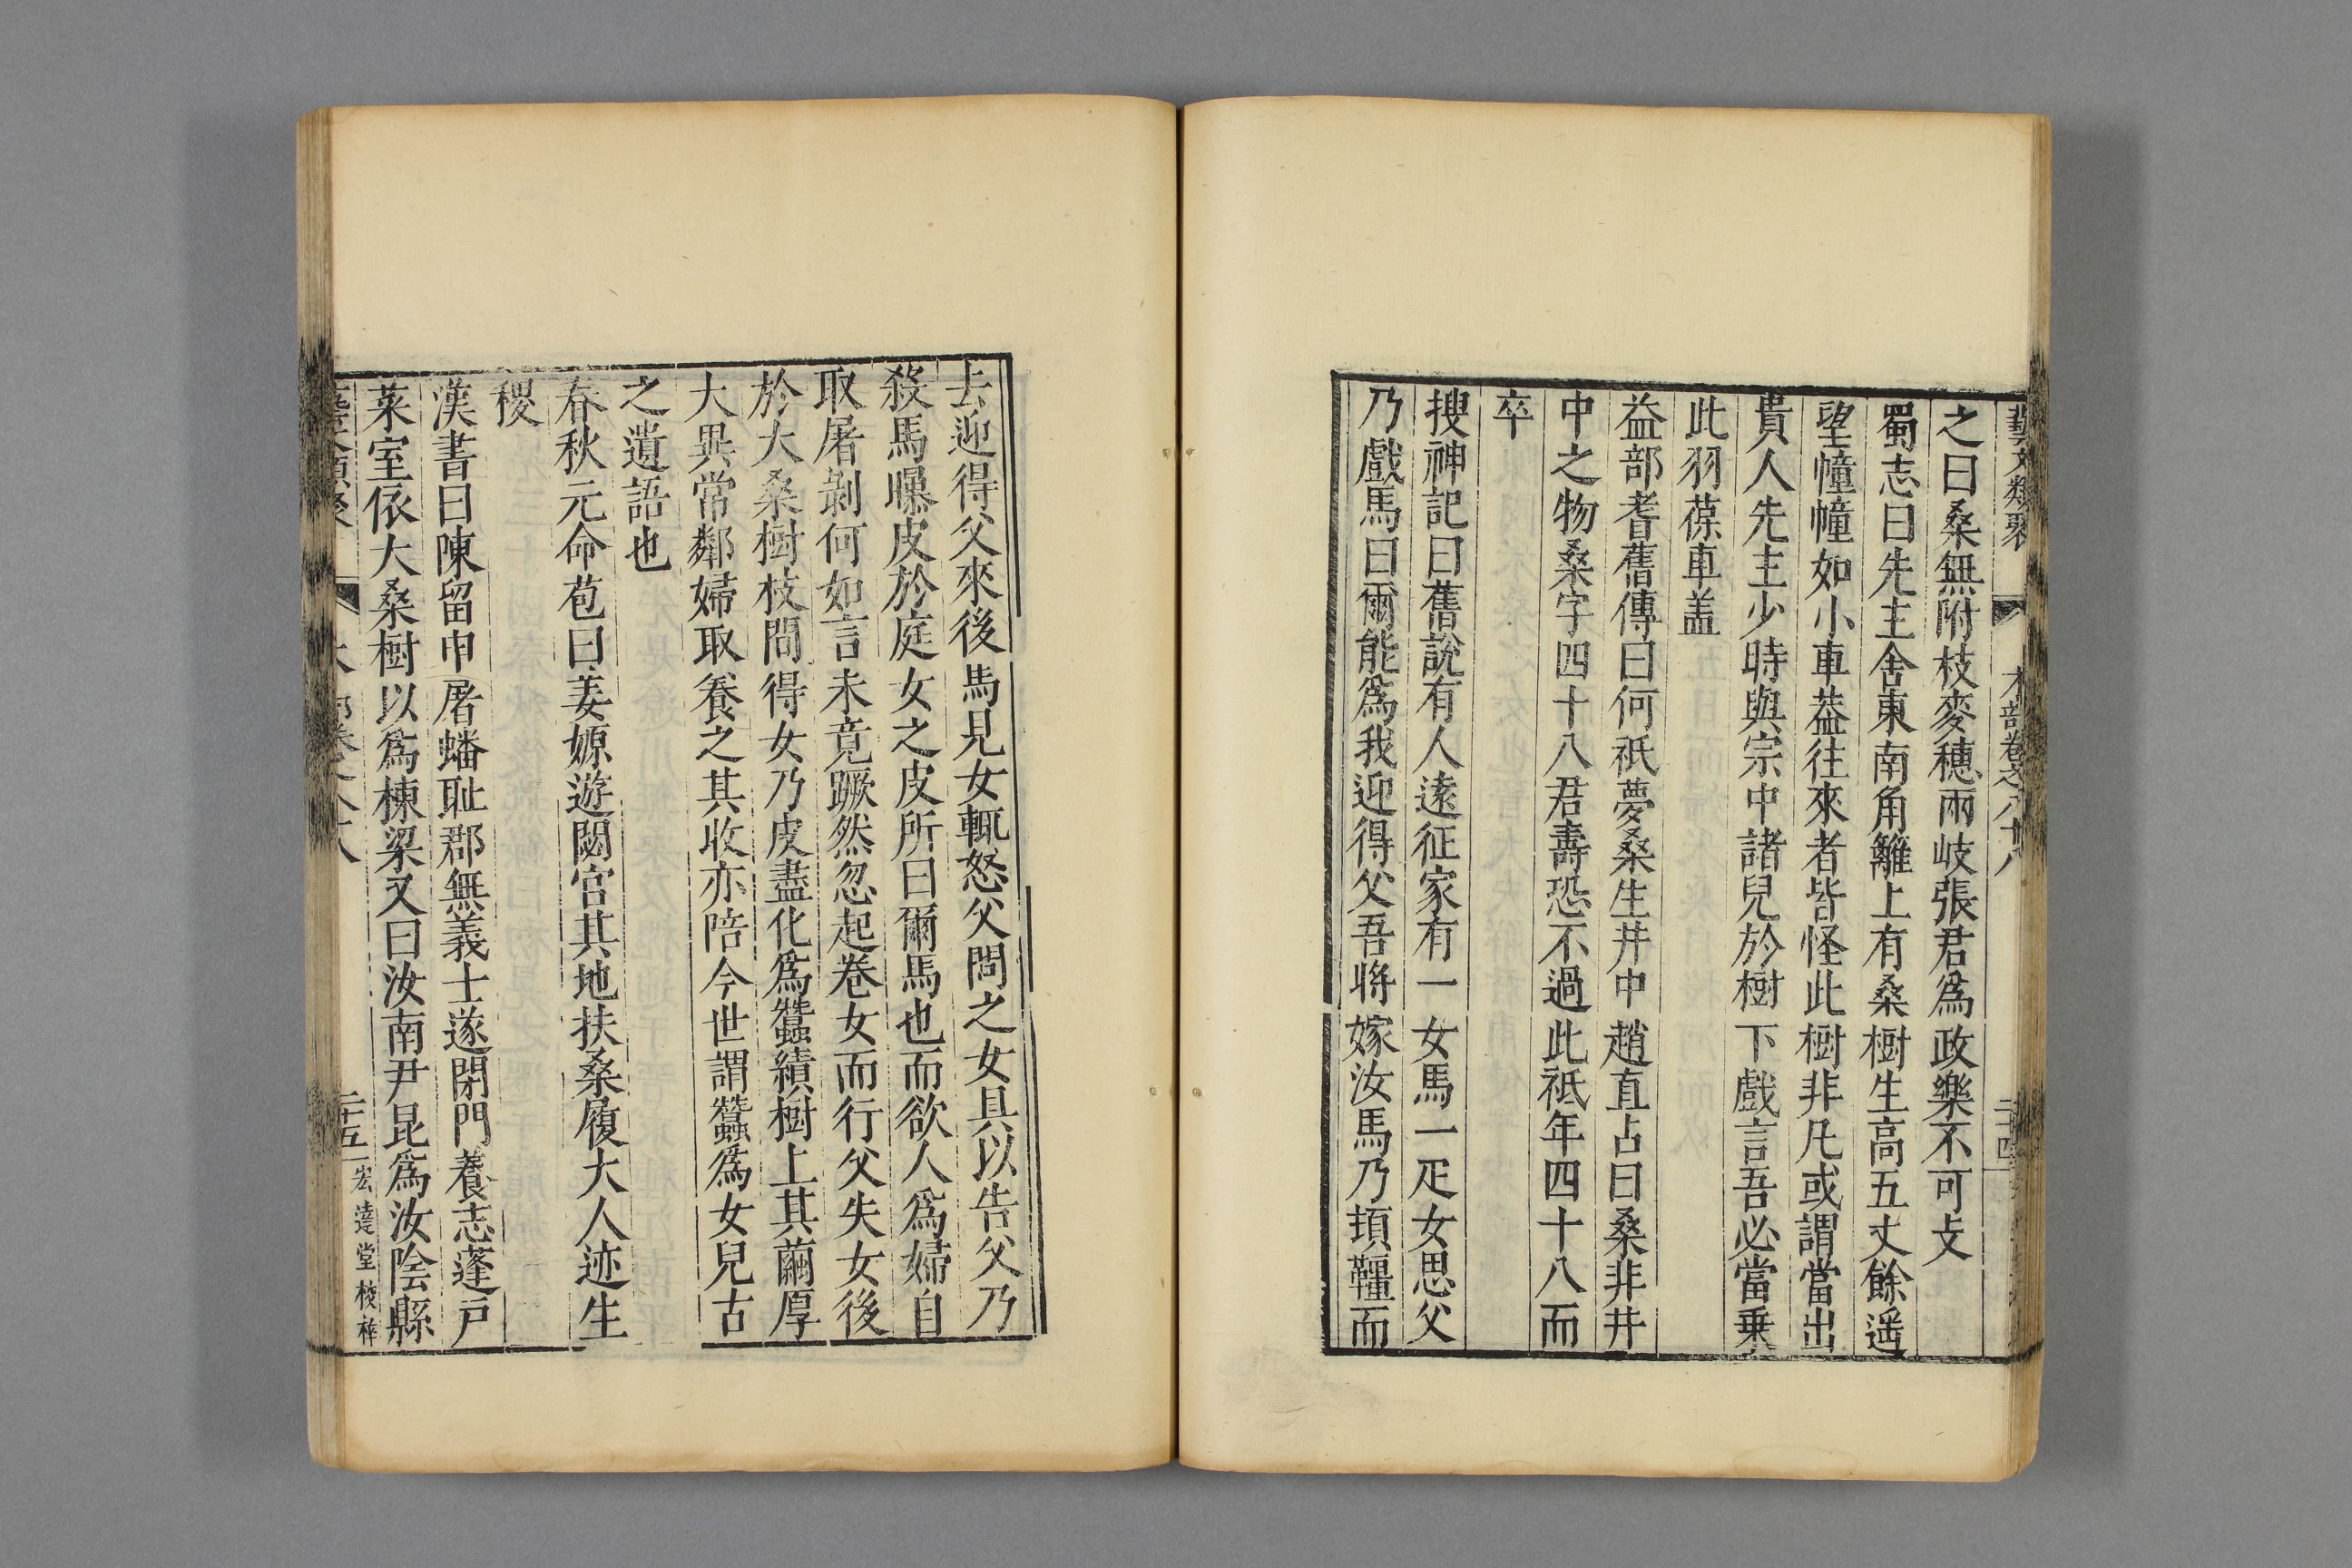 藝文類聚 木部卷之八十八 二十四
之曰桑無附枝麥穗兩岐張君爲政樂不可支
蜀志曰先主舍東南角籬上有桑樹生高五丈餘遥
望幢幢如小車葢往來者皆怪此樹非凡或謂當出
貴人先主少時與宗中諸兒於樹下戲言吾必當乗
此羽葆車盖
益部耆舊傳曰何祇夢桑生井中趙直占曰桑非井
中之物桑字四十八君壽恐不過此祇年四十八而
卒
搜神記曰舊說有人遠征家有一女馬一疋女思父
乃戲馬曰爾能爲我迎得父吾將嫁汝馬乃頓韁而
去迎得父來後馬見女輒怒父問之女具以告父乃
殺馬曝皮於庭女之皮所曰爾馬也而欲人爲婦自
取屠剝何如言未竟蹶然忽起卷女而行父失女後
於大桑樹枝間得女乃皮盡化爲蠶績樹上其繭厚
大異常鄰婦取養之其收亦陪今世謂蠶爲女兒古
之遺語也
春秋元命苞曰姜嫄遊閟宮其地扶桑履大人迹生
稷
漢書曰陳留申屠蟠耻郡無義士遂閉門養志蓬戸
茱室依大桑樹以爲棟梁又曰汝南尹昆爲汝陰縣
二十五 宏達堂校梓